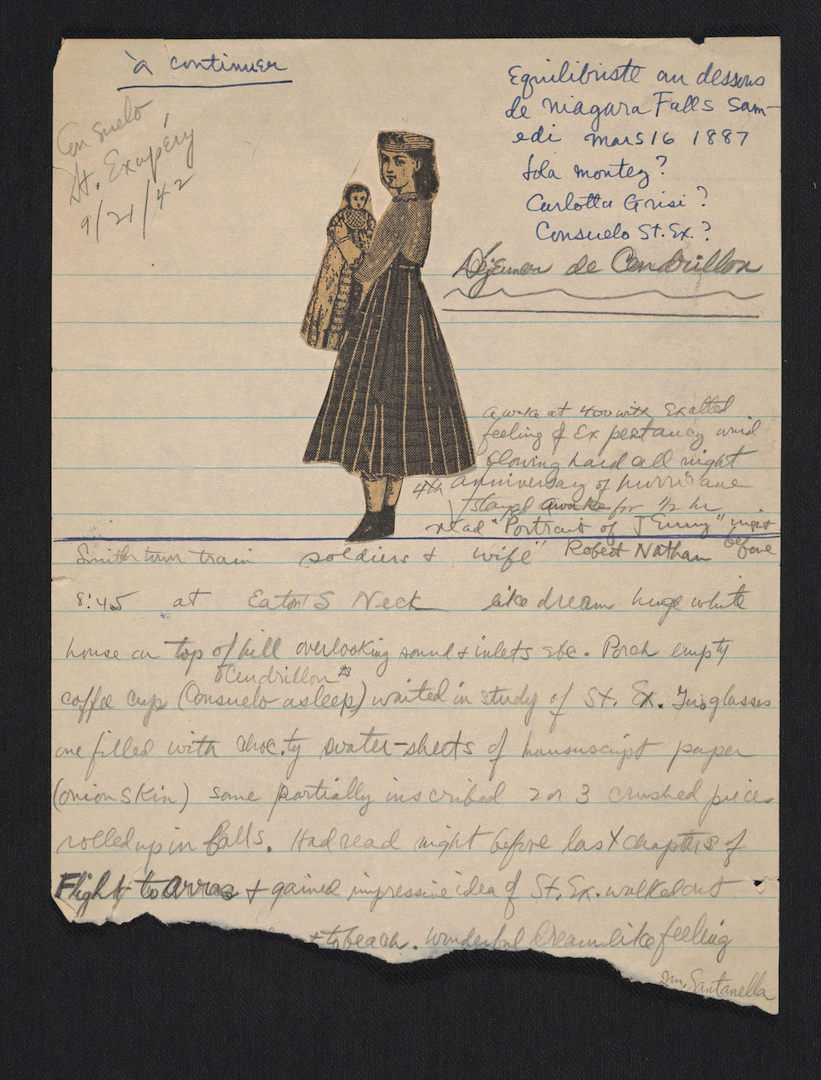 à continuer
Consuelo
St. Exupéry
9/21/42
Equilibriste au dessous
de Niagara Falls Sam-
edi Mars 16 1887
Lola Montez?
Carlotta Grisi?
Consuelo St. Ex.?
Déjeuner de Cendrillon
awake at 400 with exalted
feeling of Expectancy wind
blowing hard all night
4th anniversary of hurricane
stayed awake for 1/2 hr
read "Portrait of Jenny" night
before
Robert Nathan
Smithtown train soldiers & wife"
8:45 at Eaton's Neck like dream huge white
house on top of hill overlooking sound & inlets etc. Porch empty
Cendrillon
coffee cup (Consuelo asleep) waited in study of St. Ex. glasses
one filled with water-sheets of manuscript paper
(onion skin) some partially inscribed 2 or 3 crushed pieces
rolled up in balls. Had read night before last chapters of
Flight to Arras & gained impressive idea of St. Ex. walked out
& to beach. Wonderful Dreamlike feeling
Santanella